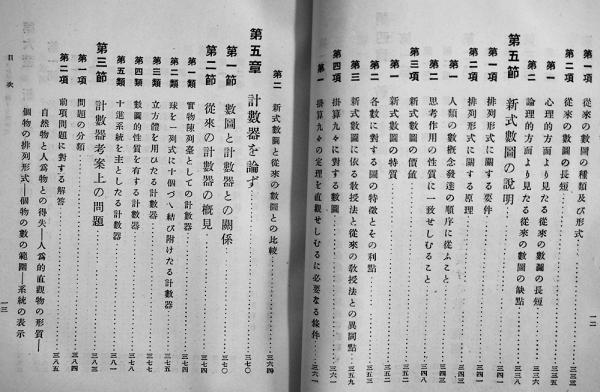 第一項 從來の數圖の種類及び形式
第二項 從來の數圖の長短
第一 心理的方面より見たる從來の數圖の長短
第二 論理的方面より見たる從來の數圖の缺點
第五節 新式數圖の說明
第一項 排列形式に關する要件
第二項 排列形式に關する原理
第一 人類の數概念發達の順序に從ふこと
第二 思考作用の性質に一致せしむること
第三項 新式數圖の價値
第一 新式數圖の特質
第二 各數に對する圖の特徵とその利點
第三 新式數圖に依る敎授法と從來の敎授法との異同點 三五九
第四項 掛算九々に對する數圖 三六一
第一 掛算九々の定理を直觀せしむるに必要なる條件 三六一
一二
第二 新式數圖と從來の數圖との比較 三六四
第五章 計數器を論ず 三七〇
第一節 數圖と計數器との關係 三七〇
第二節 從來の計數器の槪見 三七四
第一類 實物陳列臺としての計數器 三七四
第二類 球を一列式に十個づゝ結び附けたる計數器 三七五
第三類 立方體を用ひたる計數器 三七七
第四類 數圖的性質を有する計數器 三七七
第五類 十進系統を主としたる計數器 三八一
第三節 計數器考案上の問題 三八三
第一項 問題の分類 三八四
第二項 前項問題に對する解答 三八五
自然物と人爲物との得失―人爲的直觀物の形質―
個物の排列形式―個物の數の範圍―系統の表示
目次
一三